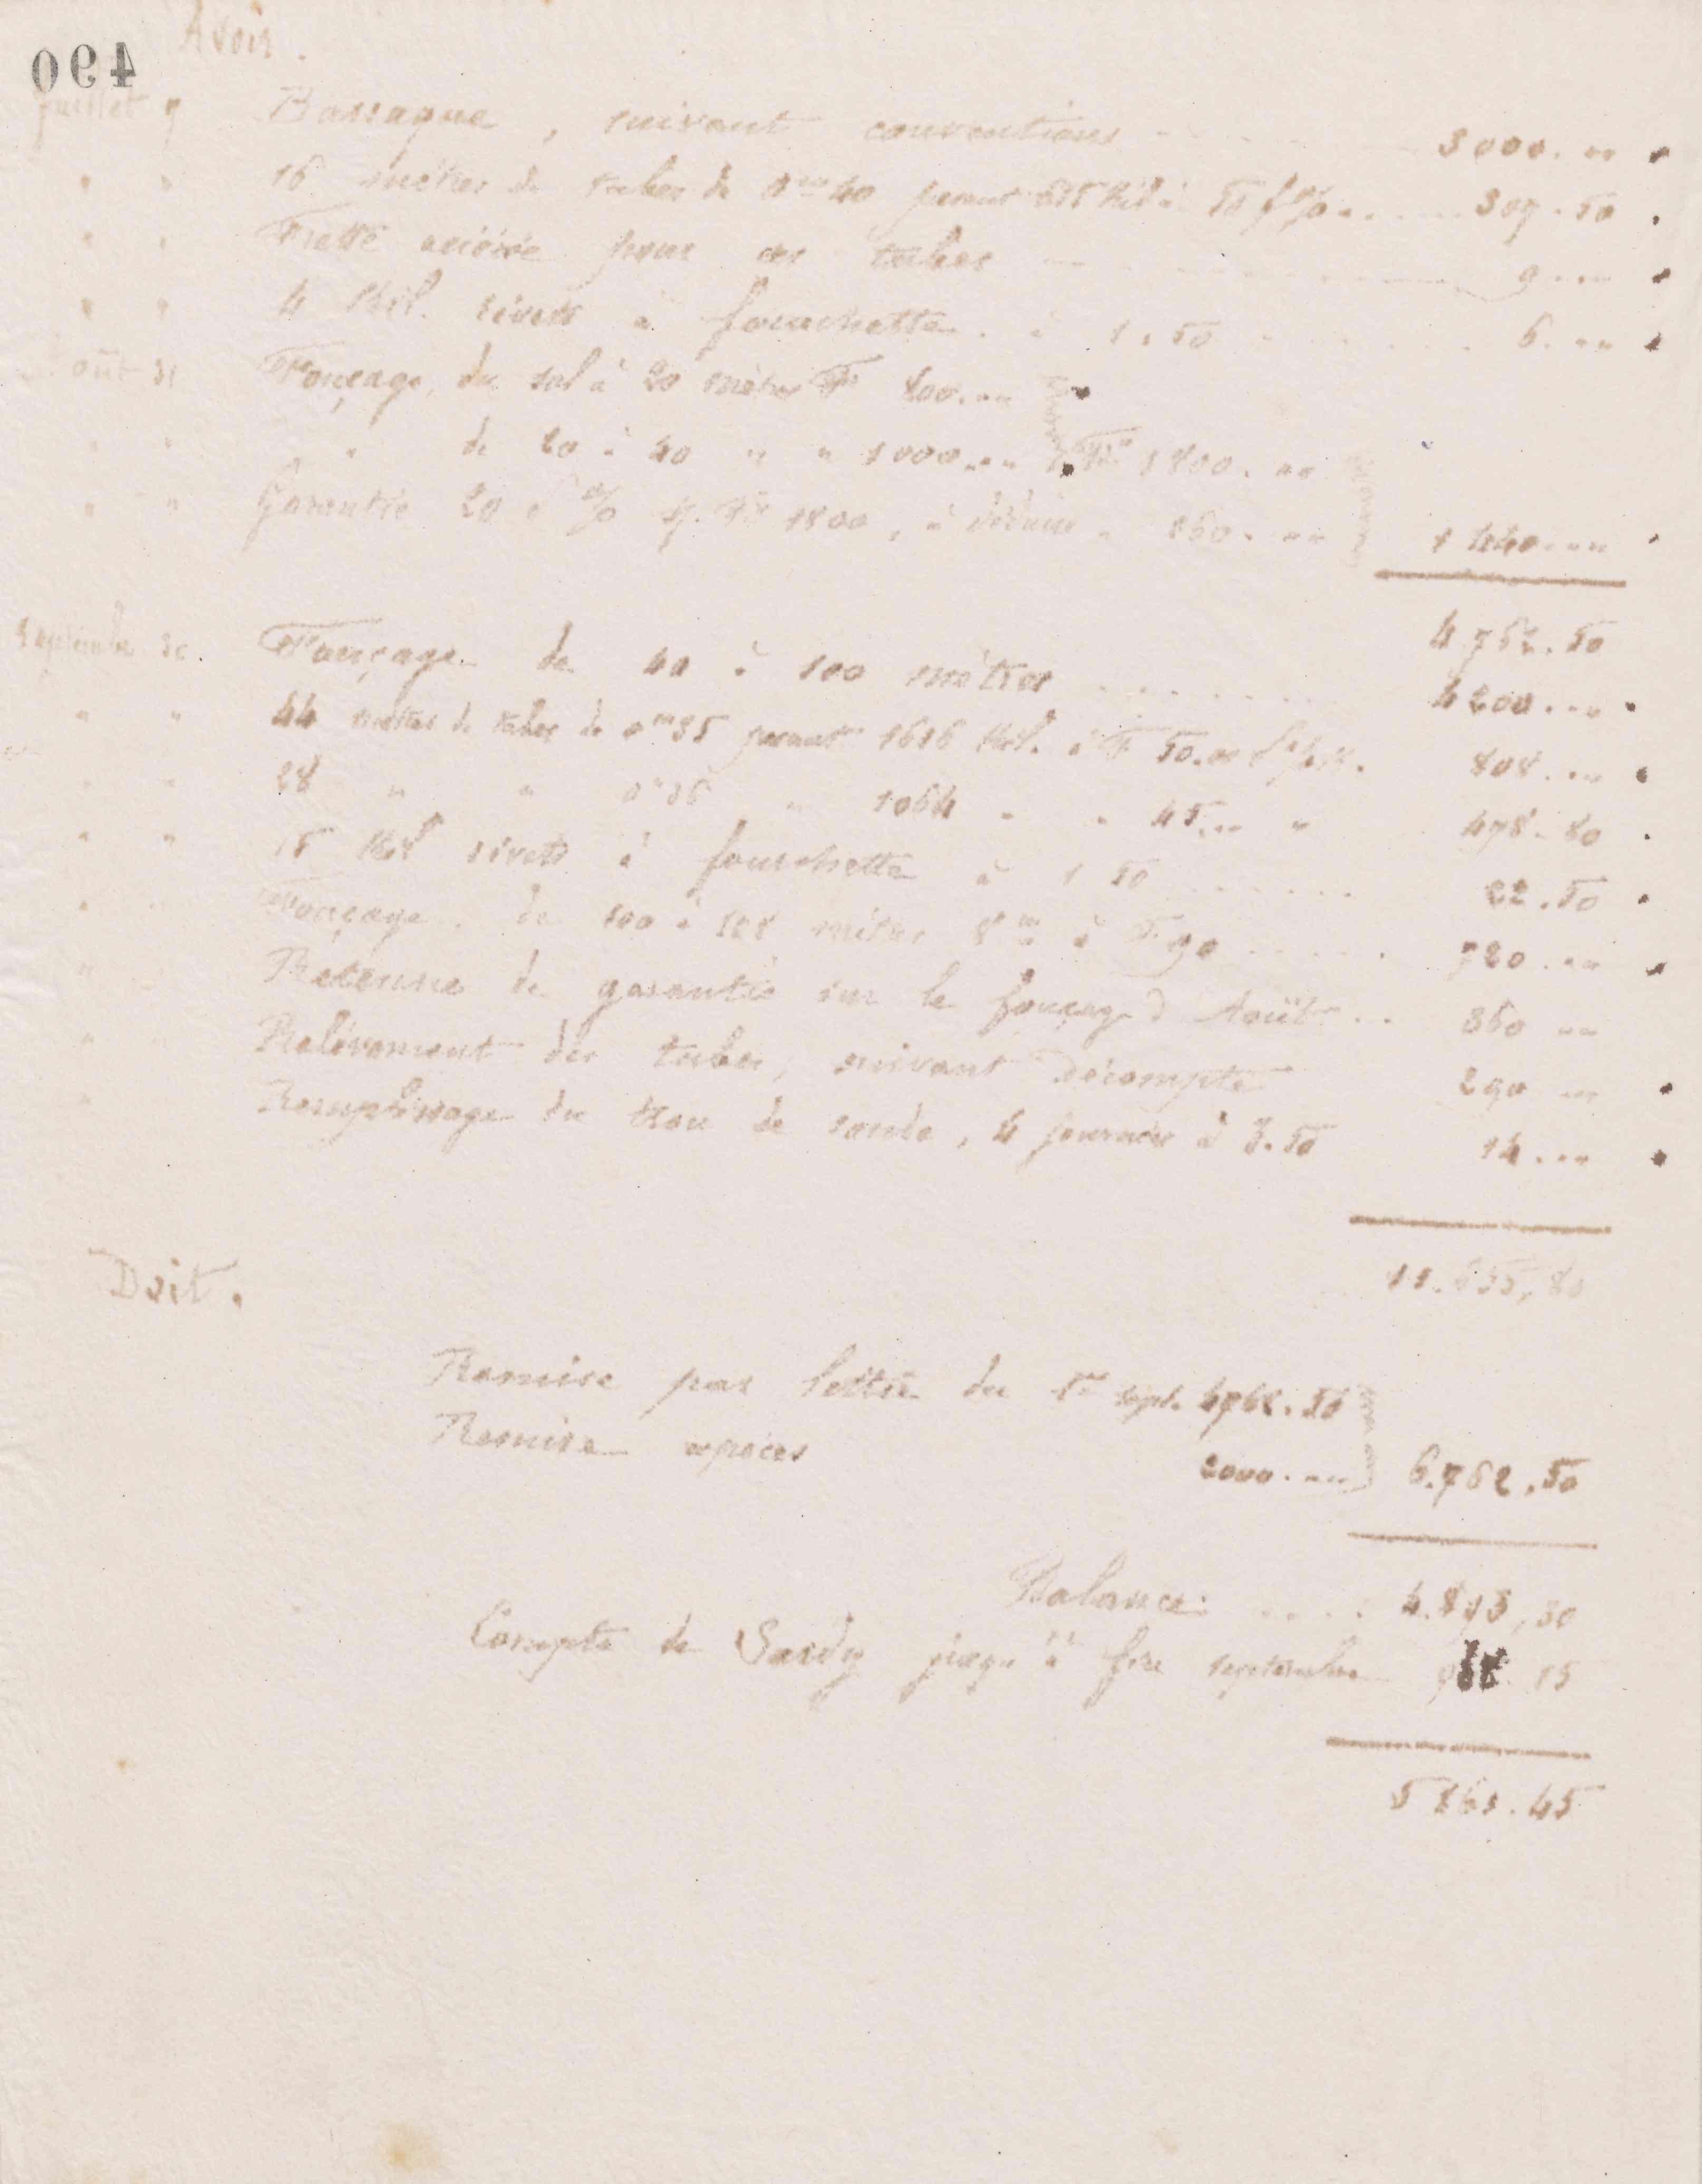 Avoir.
490
Juillet 9 Barraque, suivant conventions 3000. „ „
„ „ 16 mètres de tubes de 0m40 pesant 615 Kil à 50 f % 307.50
„ „ Frette aciérée pour ces tubes 9. „ „
„ „ 4 Kil. rivets à fourchette. à 1.50 6. „ „
Août 31 Fonçage, du sol à 20 mètres Fr 800. „ „
„ „ „ de 20 à 40 „ „ 1000. „ „ Fr 1800. „ „
„ „ Garantie 20 % s/. Fr 1800, à déduire. 360. „ „ 1440. „ „
4762.50
Septembre 30. Fonçage de 40 à 100 mètres 4200. „ „
„ „ 44 mètres de tubes de 0m35 pesant 1616 Kil. à F 50. „ 808. „ „
„ „ 28 „ „ 0m36 „ 1064 „ „ 45. „ „ 478.80
„ „ 15 Kil rivets à fourchette à 1 50 22.50
„ „ Fonçage. de 100 à 108 mètres 8m à F 90 720. „ „
„ „ Retenue de garantie sur le fonçage d'Août 360 „ „
„ „ Relèvement des tubes, suivant décompte 290 „ „
„ Remplissage du trou de sonde, 4 journées à 3.50 14. „ „
11.655,80
Doit.
Remise par lettre du 1er sept. 4762.50
Remise espèces 2000. „ „ 6.762.50
Balance: 4.893,30
Compte de Sardy jusqu'à fin septembre 15
5861.45